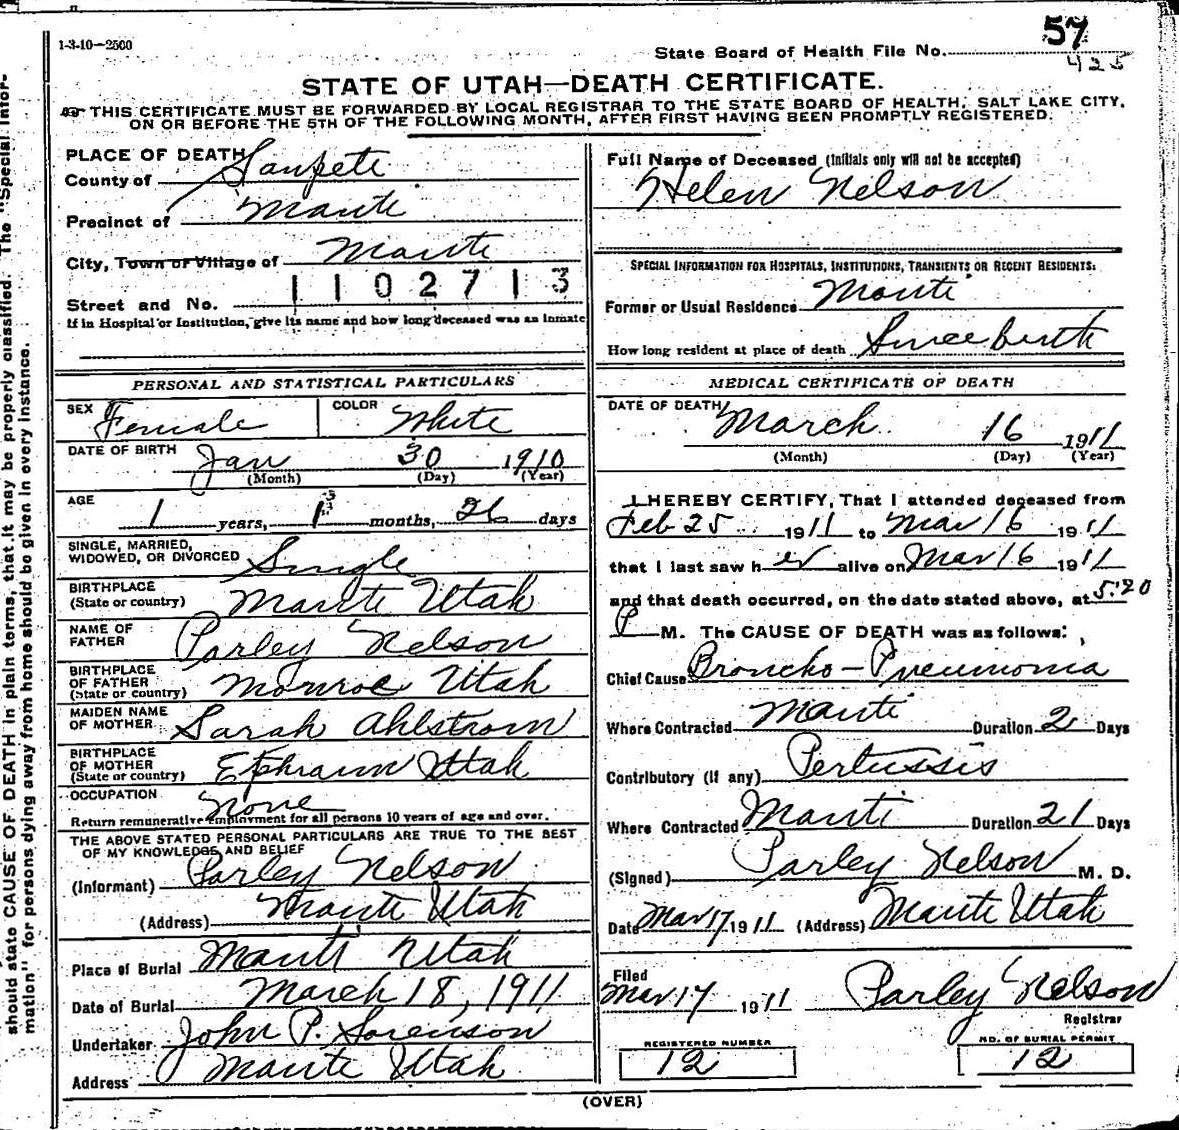 1-3-10—2500
57
State Board of Health File No.
425
STATE OF UTAH—DEATH CERTIFICATE.
THIS CERTIFICATE MUST BE FORWARDED BY LOCAL REGISTRAR TO THE STATE BOARD OF HEALTH, SALT LAKE CITY,
ON OR BEFORE THE 5TH OF THE FOLLOWING MONTH, AFTER FIRST HAVING BEEN PROMPTLY REGISTERED.
PLACE OF DEATH
County of Sanpete
Precinct of Manti
City, Town or Village of Manti
1102713
Street and No.
If in Hospital or Institution, give its name and how long deceased was an inmate
Full Name of Deceased (Initials only will not be accepted)
Helen Nelson
SPECIAL INFORMATION FOR HOSPITALS, INSTITUTIONS, TRANSIENTS OR RECENT RESIDENTS.
Former or Usual Residence Manti
How long resident at place of death Since birth
PERSONAL AND STATISTICAL PARTICULARS
SEX Female COLOR White
DATE OF BIRTH Jan 30 1910
(Month) (Day) (Year)
AGE
1 years, 1 months, 26 days
SINGLE, MARRIED,
WIDOWED, OR DIVORCED Single
BIRTHPLACE
(State or country) Manti Utah
NAME OF
FATHER Parley Nelson
BIRTHPLACE
OF FATHER
(State or country) Monroe Utah
MAIDEN NAME
OF MOTHER Sarah Ahlstrom
BIRTHPLACE
OF MOTHER
(State or country) Ephraim Utah
OCCUPATION None
Return remunerative employment for all persons 10 years of age and over.
THE ABOVE STATED PERSONAL PARTICULARS ARE TRUE TO THE BEST
OF MY KNOWLEDGE AND BELIEF
(Informant) Parley Nelson
(Address) Manti Utah
Place of Burial Manti Utah
Date of Burial March 18, 1911
Undertaker John P. Sorenson
Address Manti Utah
MEDICAL CERTIFICATE OF DEATH
DATE OF DEATH March 16 1911
(Month) (Day) (Year)
I HEREBY CERTIFY, That I attended deceased from
Feb 25 1911 to Mar 16 1911
that I last saw her alive on Mar 16 1911
and that death occurred, on the date stated above, at 5:20
P M. The CAUSE OF DEATH was as follows:
Chief Cause Broncho-Pneumonia
Where Contracted Manti Duration 2 Days
Contributory (if any) Pertussis
Where Contracted Manti Duration 21 Days
(Signed) Parley Nelson M. D.
Date Mar 17 1911 (Address) Manti Utah
Filed
Mar 17 1911 Parley Nelson
Registrar
REGISTERED NUMBER
12
NO. OF BURIAL PERMIT
12
(OVER)
should state CAUSE OF DEATH in plain terms, that it may be properly classified. The "Special Infor-
mation" for persons dying away from home should be given in every instance.